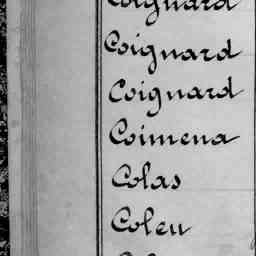 Coignard
Coignard
Coignard
Coimena
Colas
Coleu